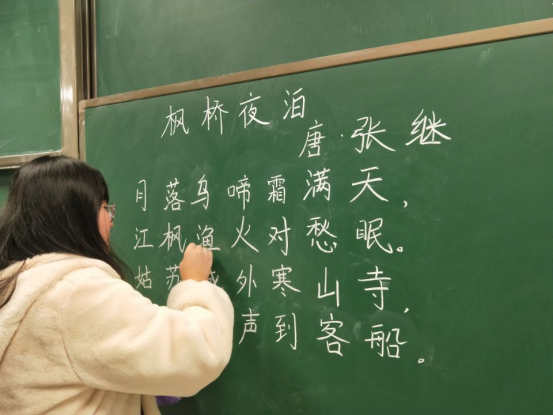 枫桥夜泊
唐·张继
月落乌啼霜满天，
江枫渔火对愁眠。
姑苏城外寒山寺，
声到客船。